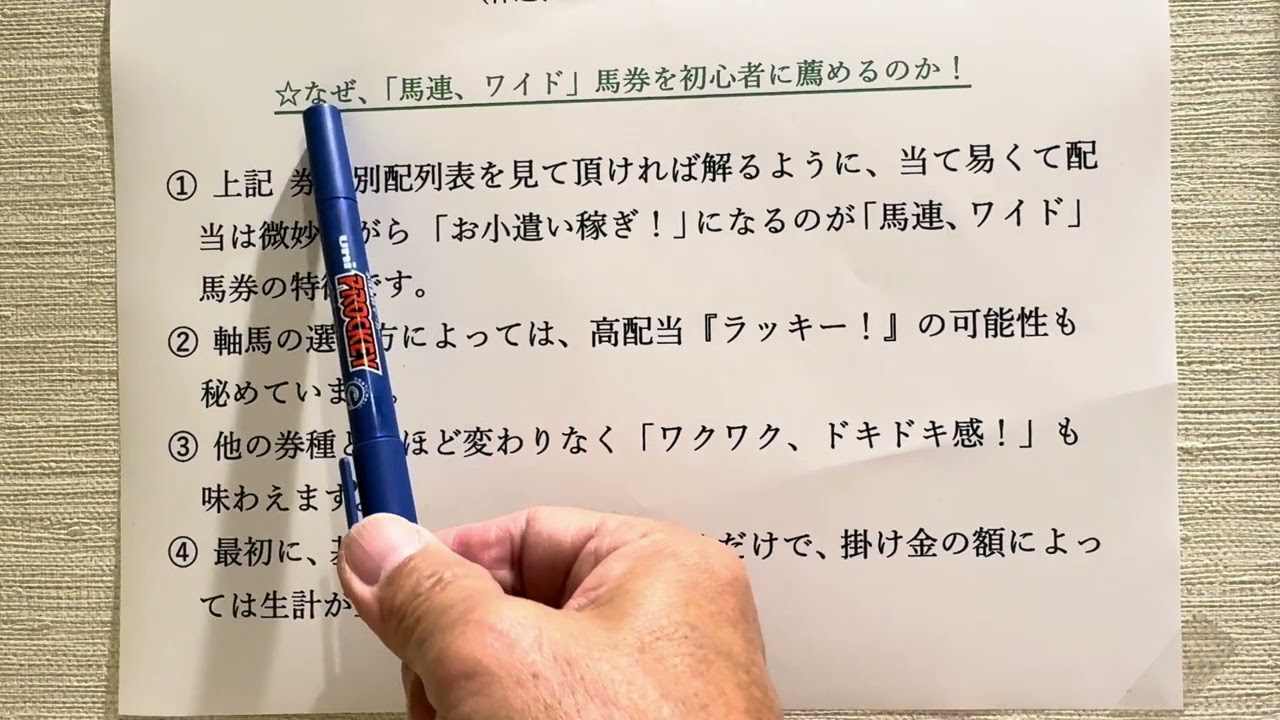 ☆なぜ、「馬連、ワイド」馬券を初心者に薦めるのか！
① 上記 券 別配列表を見て頂ければ解るように、当て易くて配
当は微妙 がら「お小遣い稼ぎ！」になるのが「馬連、ワイド」
馬券の特徴です。
② 軸馬の選 方によっては、高配当『ラッキー！』の可能性も
秘めていま 。
③ 他の券種と ほど変わりなく「ワクワク、ドキドキ感！」も
味わえます。
④ 最初に、 だけで、掛け金の額によっ
ては生計が
uni
PROCKEY